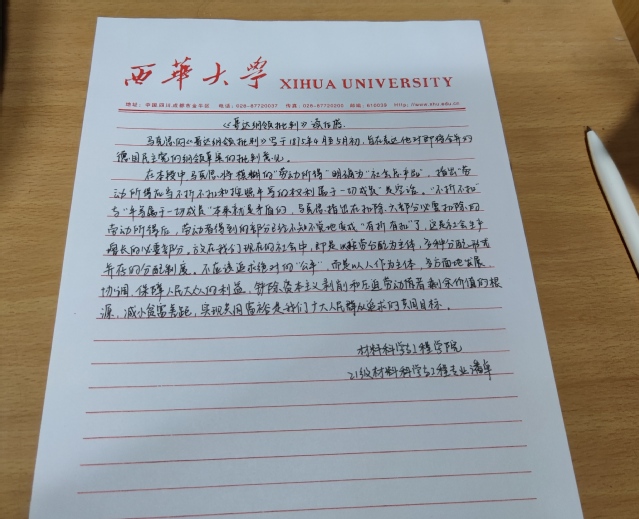 西华大学 XIHUA UNIVERSITY
地址：中国四川成都市金牛区 电话：028-87720037 传真：028-87720200 邮编：610039 http://www.xhu.edu.cn
《哥达纲领批判》读后感
马克思的《哥达纲领批判》写于1875年4月至5月初，旨在表达他对即将合并的
德国民主党的纲领草案的批判意见。
在本段中马克思将模糊的“劳动所得”明确为“社会总产品”，指出“劳
动所得应当不折不扣和按照平等的权利属于一切成员”是谬论。“不折不扣”
与“平等属于一切成员”本来就是矛盾的，马克思指出在扣除六部分必要扣除的
劳动所得后，劳动者得到的部分已经不知不觉地变成“有折有扣”了，这是社会生产
增长的必要部分。放在我们现在的社会中，即是以按劳分配为主体，多种分配形式
并存的分配制度。不应该追求绝对的“公平”，而是以人作为主体，多方面地发展
协调，保障人民大众的利益，铲除资本主义剥削和压迫劳动清者剩余价值的根
源，减小贫富差距，实现共同富裕是我们广大人民群众追求的共同目标。
材料科学与工程学院
21级材料科学与工程专业潘卓